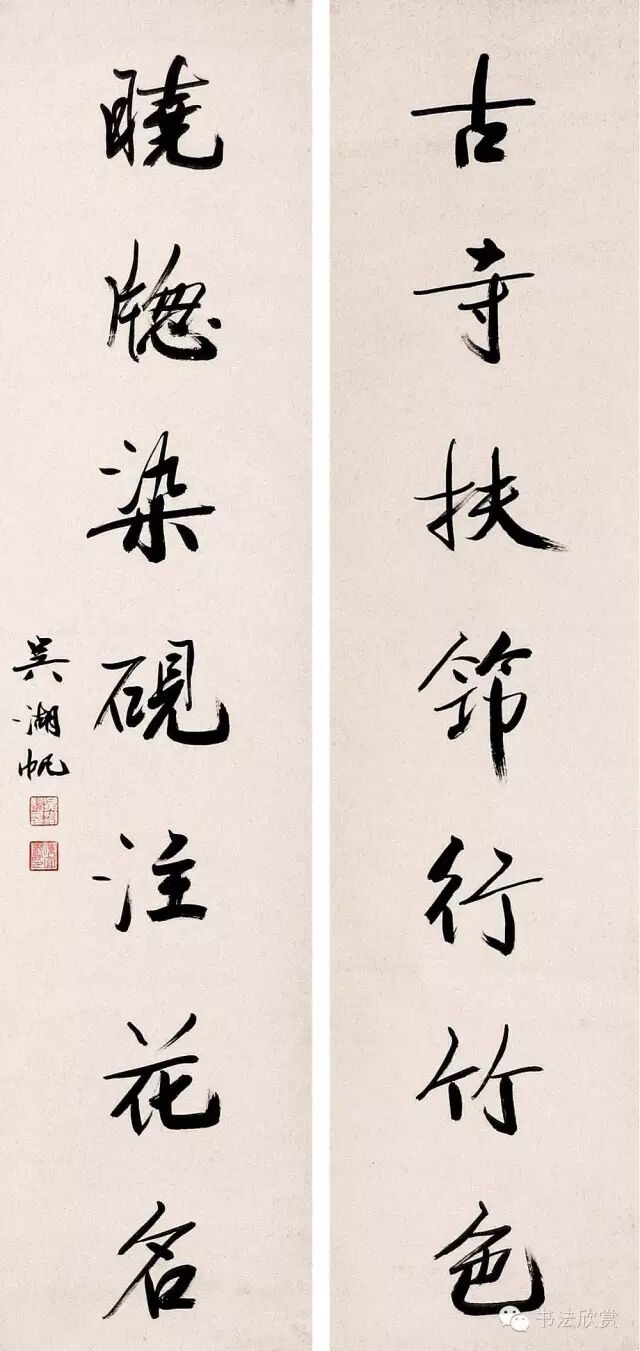 古寺扶筇行竹色
曉牕染硯注花名
吴湖帆
书法欣赏